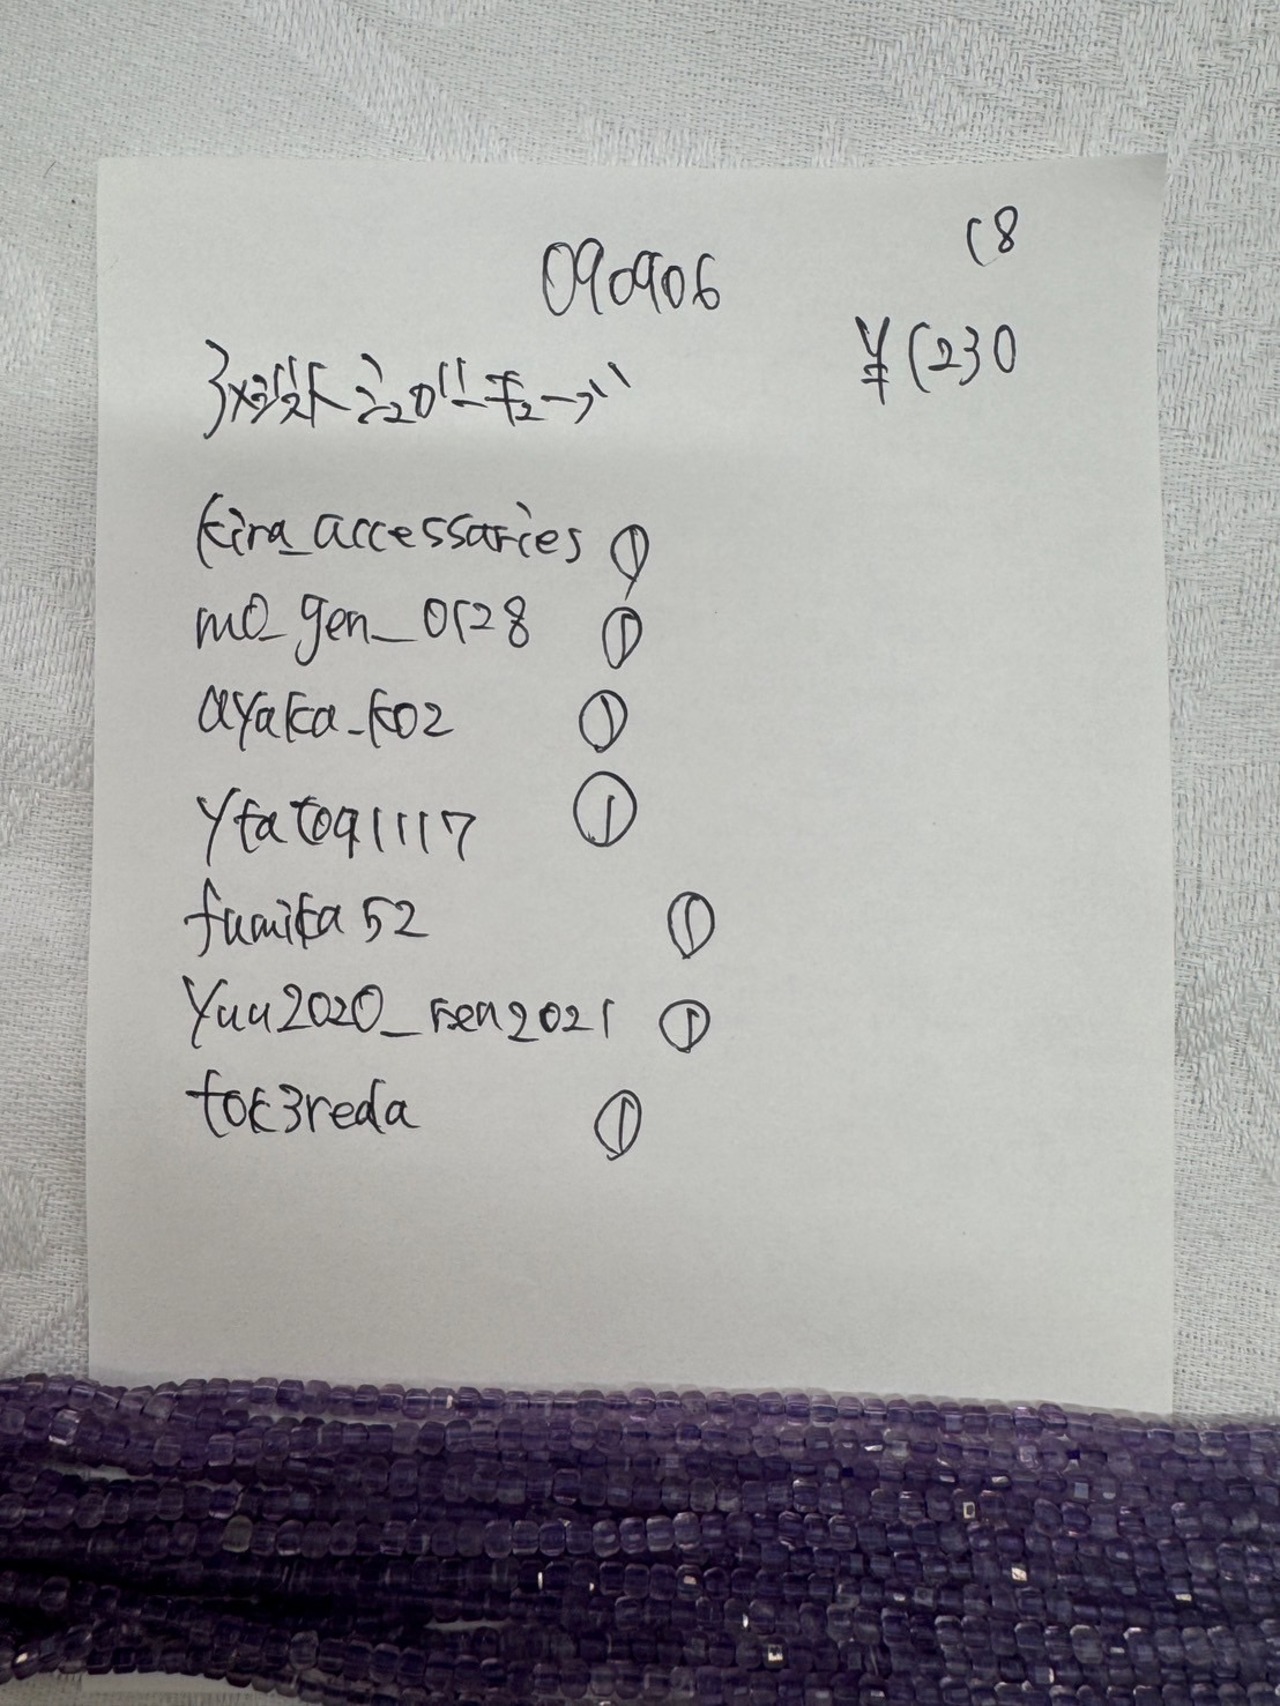 18
090906
¥1230
kira_accessaries ①
mo_gen_0128 ①
ayaka_k02 ①
ytatoq1117 ①
fumika52 ①
yuu2020_ren2021 ①
tok3reda ①